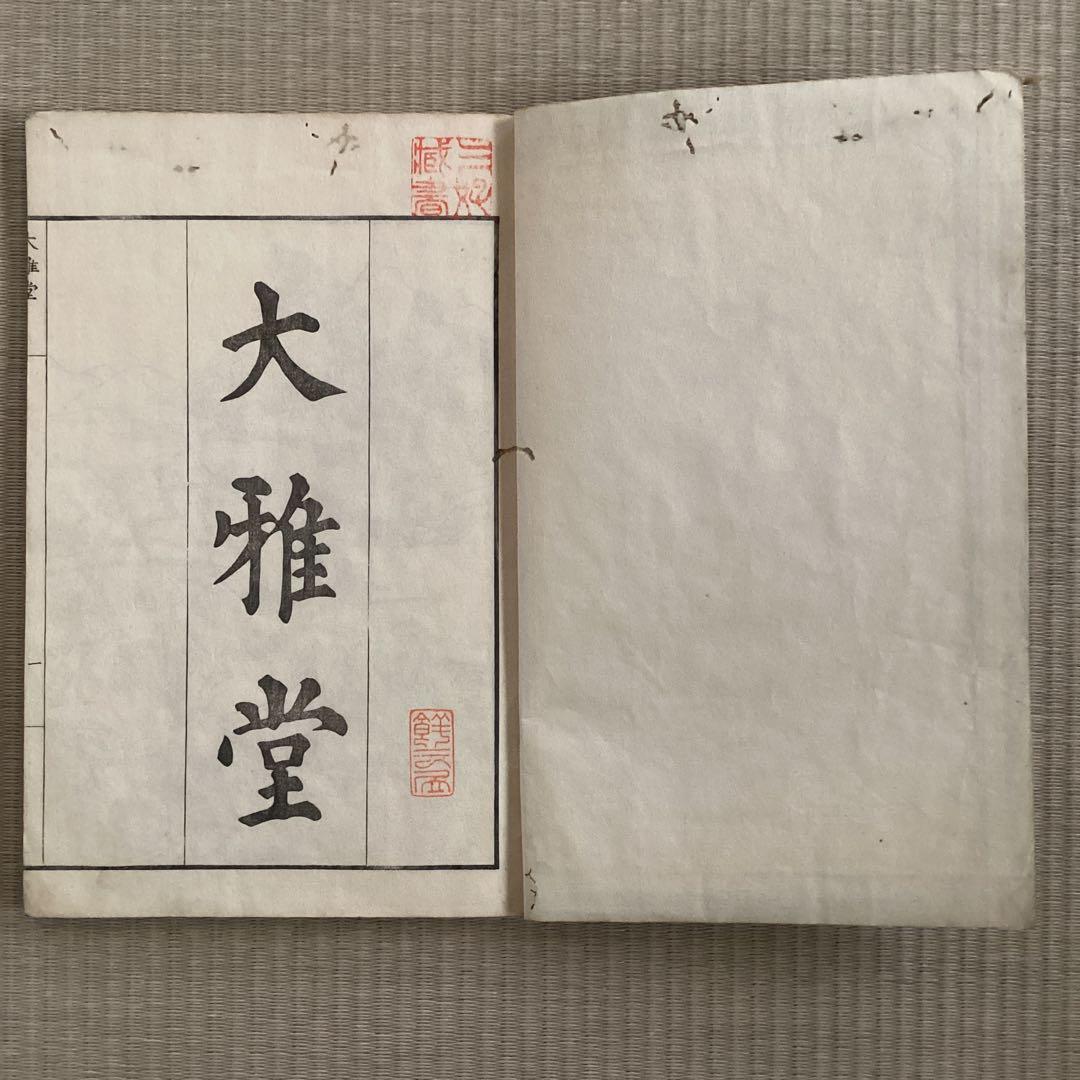 三好
藏書
大雅堂
大雅堂
一